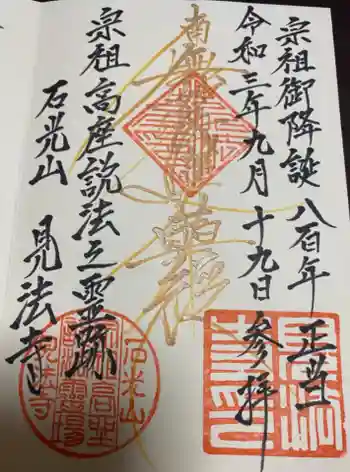 宗祖御降誕八百年正当
令和三年九月十九日参拝
南無妙法蓮華経
宗祖高座説法之霊跡
石光山 見法寺
石光山